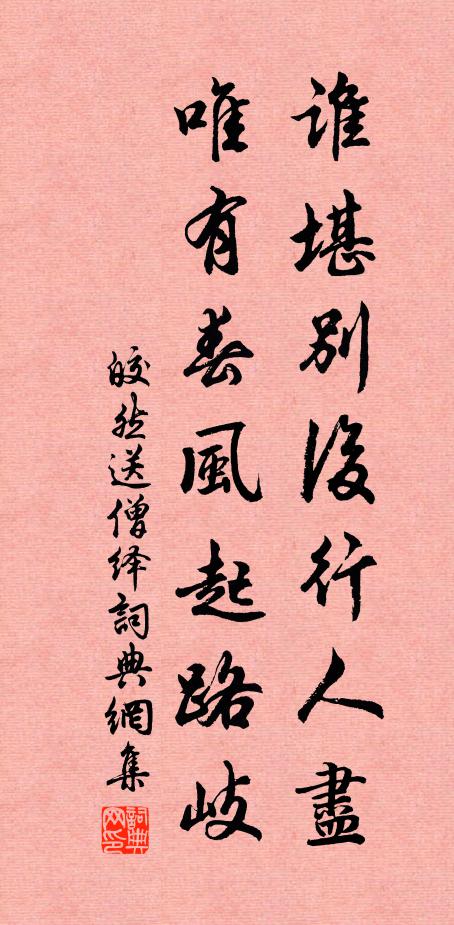 誰堪別後行人盡
唯有春風起路岐
皎然送僧绎詞典網集
詞典网印